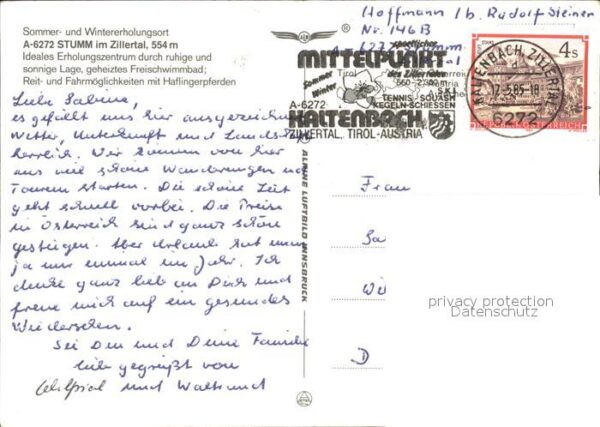 Sommer- und Wintererholungsort
A-6272 STUMM im Zillertal, 554 m
Ideales Erholungszentrum durch ruhige und
sonnige Lage, geheiztes Freischwimmbad;
Reit- und Fahrmöglichkeiten mit Haflingerpferden
Hoffmann / b. Rudolf Steiner
No. 146 B
6272 Stumm
Tirol
sportlicher
MITTELPUNKT
des Zillertales
Sommer
Winter
560-2340 m
SKI
TENNIS SQUASH
KEGELN SCHIESSEN
A-6272
KALTENBACH
ZILLERTAL, TIROL-AUSTRIA
KALTENBACH, ZILLERTAL
12.5.85-18
6272
4 S
REPUBLIK ÖSTERREICH
Liebe Sabine,
es gefällt uns hier ausgezeichnet
Wetter, Unterkunft und Landschaft
herrlich. Wir können von hier
aus viele schöne Wanderungen und
Touren starten. Die schöne Zeit
geht schnell vorbei. Die Preise
in Österreich sind ganz schön
gestiegen. Aber Urlaub hat man
ja nur einmal im Jahr. Ich
denke ganz lieb an Dich und
freue mich auf ein gesundes
Wiedersehen.
Sei Du und Deine Familie
lieb gegrüßt von
Wilfried und Waltraud
ALPINE LUFTBILD INNSBRUCK
Frau
Sa
D
privacy protection
Datenschutz